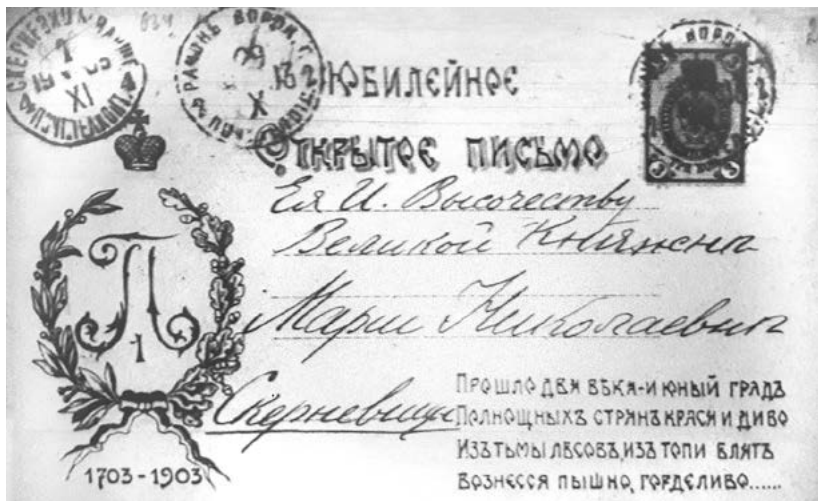 СКЕРНЕВИЦЫ ВАРШ.
1
XI
РАМОНЬ ВОРОН. Г.
X
ЮБИЛЕЙНОЕ
ОТКРЫТОЕ ПИСЬМО
Ея И. Высочеству
Великой Княжнѣ
Марии Николаевнѣ
Скерневицы
П
1
1703-1903
ПРОШЛО ДВА ВѢКА-И ЮНЫЙ ГРАДЪ
ПОЛНОЩНЫХЪ СТРАНЪ КРАСА И ДИВО
ИЗЪ ТЬМЫ ЛѢСОВЪ, ИЗЪ ТОПИ БЛАТЪ
ВОЗНЕССЯ ПЫШНО, ГОРДЕЛИВО......